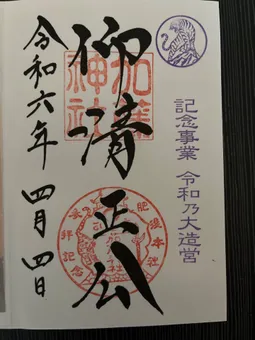 記念事業 令和乃大造営
仰清正公
加藤神社
参拝記念
令和六年 四月四日